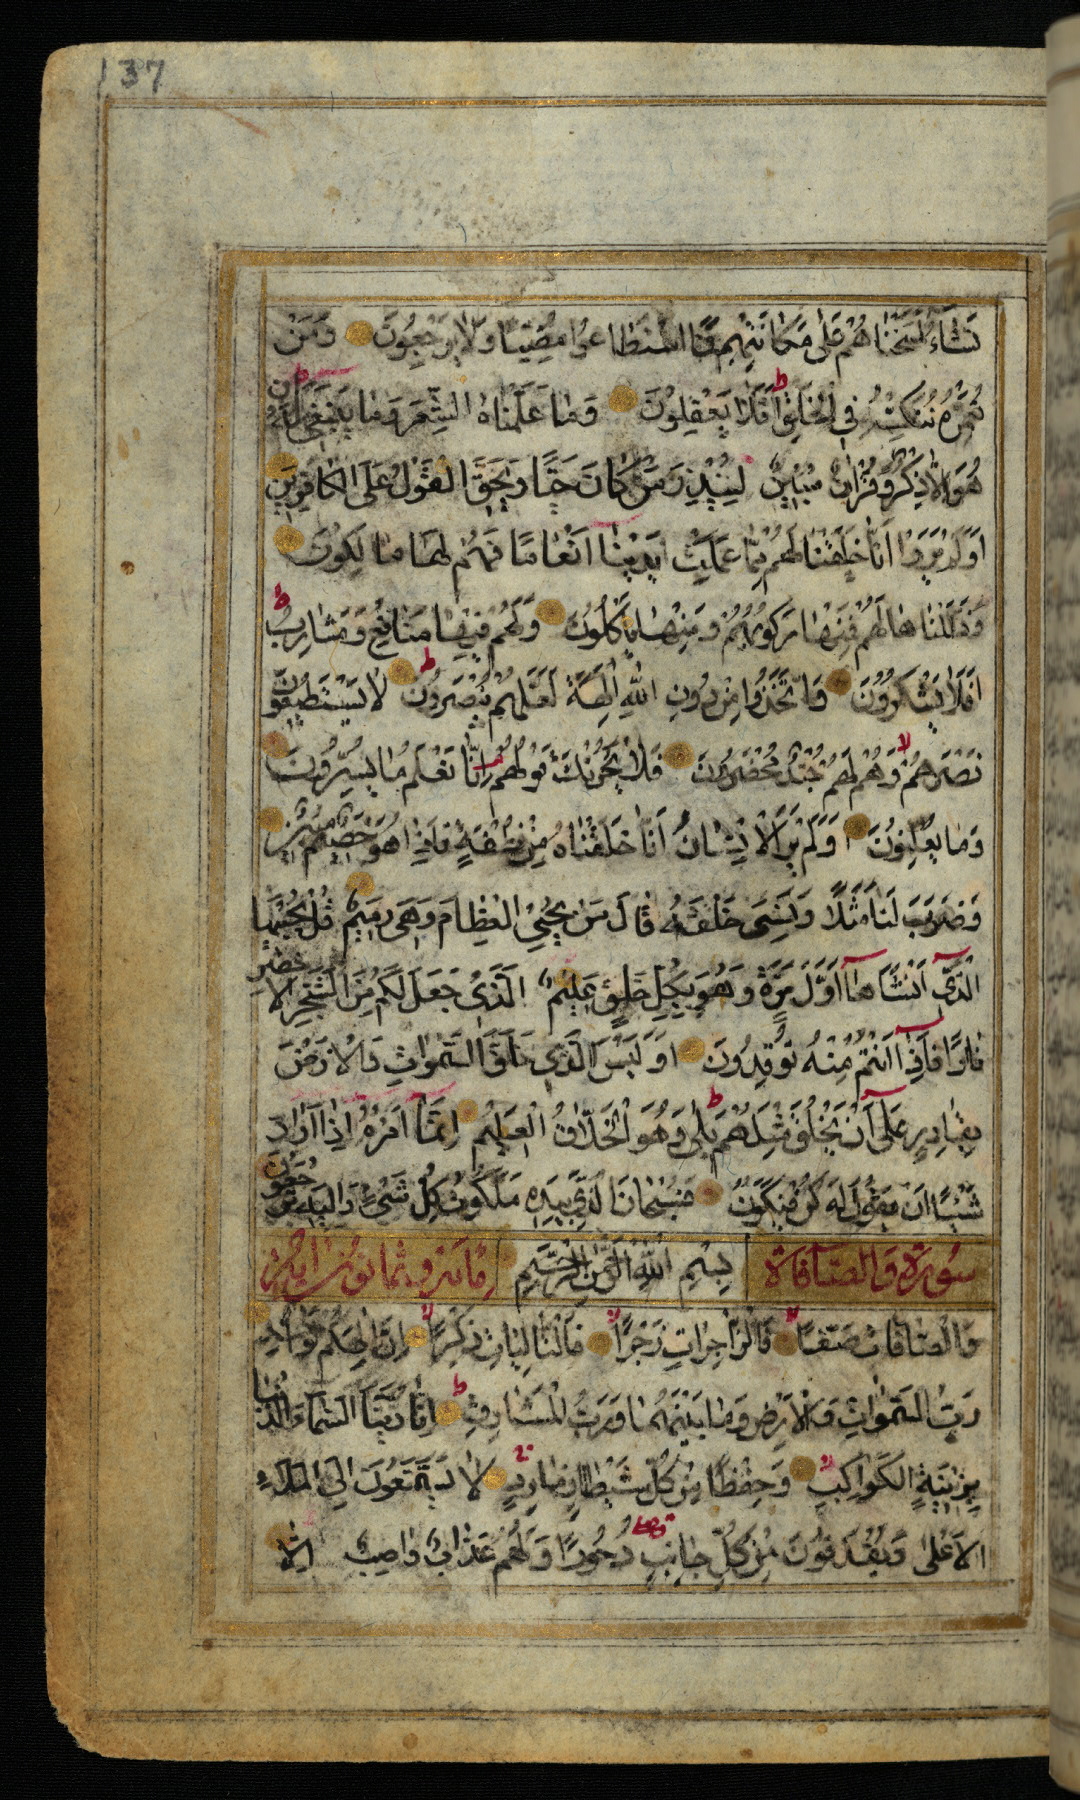 137
نَشَآءُ لَمَسَخْنَاهُمْ عَلٰى مَكَانَتِهِمْ فَمَا اسْتَطَاعُوا مُضِيًّا وَلَا يَرْجِعُونَ وَمَنْ
نُعَمِّرْهُ نُنَكِّسْهُ فِي الْخَلْقِ ط اَفَلَا يَعْقِلُونَ وَمَا عَلَّمْنَاهُ الشِّعْرَ وَمَا يَنْبَغِي لَهُ اِنْ
هُوَ اِلَّا ذِكْرٌ وَقُرْاٰنٌ مُبِينٌ لِيُنْذِرَ مَنْ كَانَ حَيًّا وَيَحِقَّ الْقَوْلُ عَلَى الْكَافِرِينَ
اَوَلَمْ يَرَوْا اَنَّا خَلَقْنَا لَهُمْ مِمَّا عَمِلَتْ اَيْدِينَا اَنْعَامًا فَهُمْ لَهَا مَالِكُونَ
وَذَلَّلْنَاهَا لَهُمْ فَمِنْهَا رَكُوبُهُمْ وَمِنْهَا يَأْكُلُونَ وَلَهُمْ فِيهَا مَنَافِعُ وَمَشَارِبُ ط
اَفَلَا يَشْكُرُونَ وَاتَّخَذُوا مِنْ دُونِ اللّٰهِ اٰلِهَةً لَعَلَّهُمْ يُنْصَرُونَ ط لَا يَسْتَطِيعُونَ
نَصْرَهُمْ لا وَهُمْ لَهُمْ جُنْدٌ مُحْضَرُونَ فَلَا يَحْزُنْكَ قَوْلُهُمْ اِنَّا نَعْلَمُ مَا يُسِرُّونَ
وَمَا يُعْلِنُونَ اَوَلَمْ يَرَ الْاِنْسَانُ اَنَّا خَلَقْنَاهُ مِنْ نُطْفَةٍ فَاِذَا هُوَ خَصِيمٌ مُبِينٌ
وَضَرَبَ لَنَا مَثَلًا وَنَسِيَ خَلْقَهُ قَالَ مَنْ يُحْيِي الْعِظَامَ وَهِيَ رَمِيمٌ قُلْ يُحْيِيهَا
الَّذِي اَنْشَاَهَا اَوَّلَ مَرَّةٍ وَهُوَ بِكُلِّ خَلْقٍ عَلِيمٌ الَّذِي جَعَلَ لَكُمْ مِنَ الشَّجَرِ الْاَخْضَرِ
نَارًا فَاِذَا اَنْتُمْ مِنْهُ تُوقِدُونَ اَوَلَيْسَ الَّذِي خَلَقَ السَّمٰوَاتِ وَالْاَرْضَ
بِقَادِرٍ عَلٰى اَنْ يَخْلُقَ مِثْلَهُمْ ط بَلٰى وَهُوَ الْخَلَّاقُ الْعَلِيمُ اِنَّمَا اَمْرُهُ اِذَا اَرَادَ
شَيْئًا اَنْ يَقُولَ لَهُ كُنْ فَيَكُونُ فَسُبْحَانَ الَّذِي بِيَدِهِ مَلَكُوتُ كُلِّ شَيْءٍ وَاِلَيْهِ تُرْجَعُونَ
سُورَةُ وَالصَّافَاتِ بِسْمِ اللّٰهِ الرَّحْمٰنِ الرَّحِيمِ
وَالصَّافَّاتِ صَفًّا لا فَالزَّاجِرَاتِ زَجْرًا لا فَالتَّالِيَاتِ ذِكْرًا لا اِنَّ اِلٰهَكُمْ لَوَاحِدٌ
رَبُّ السَّمٰوَاتِ وَالْاَرْضِ وَمَا بَيْنَهُمَا وَرَبُّ الْمَشَارِقِ ط اِنَّا زَيَّنَّا السَّمَآءَ الدُّنْيَا
بِزِينَةٍ الْكَوَاكِبِ لا وَحِفْظًا مِنْ كُلِّ شَيْطَانٍ مَارِدٍ لَا يَسَّمَّعُونَ اِلَى الْمَلَاِ
الْاَعْلٰى وَيُقْذَفُونَ مِنْ كُلِّ جَانِبٍ دُحُورًا وَلَهُمْ عَذَابٌ وَاصِبٌ اِلَّا